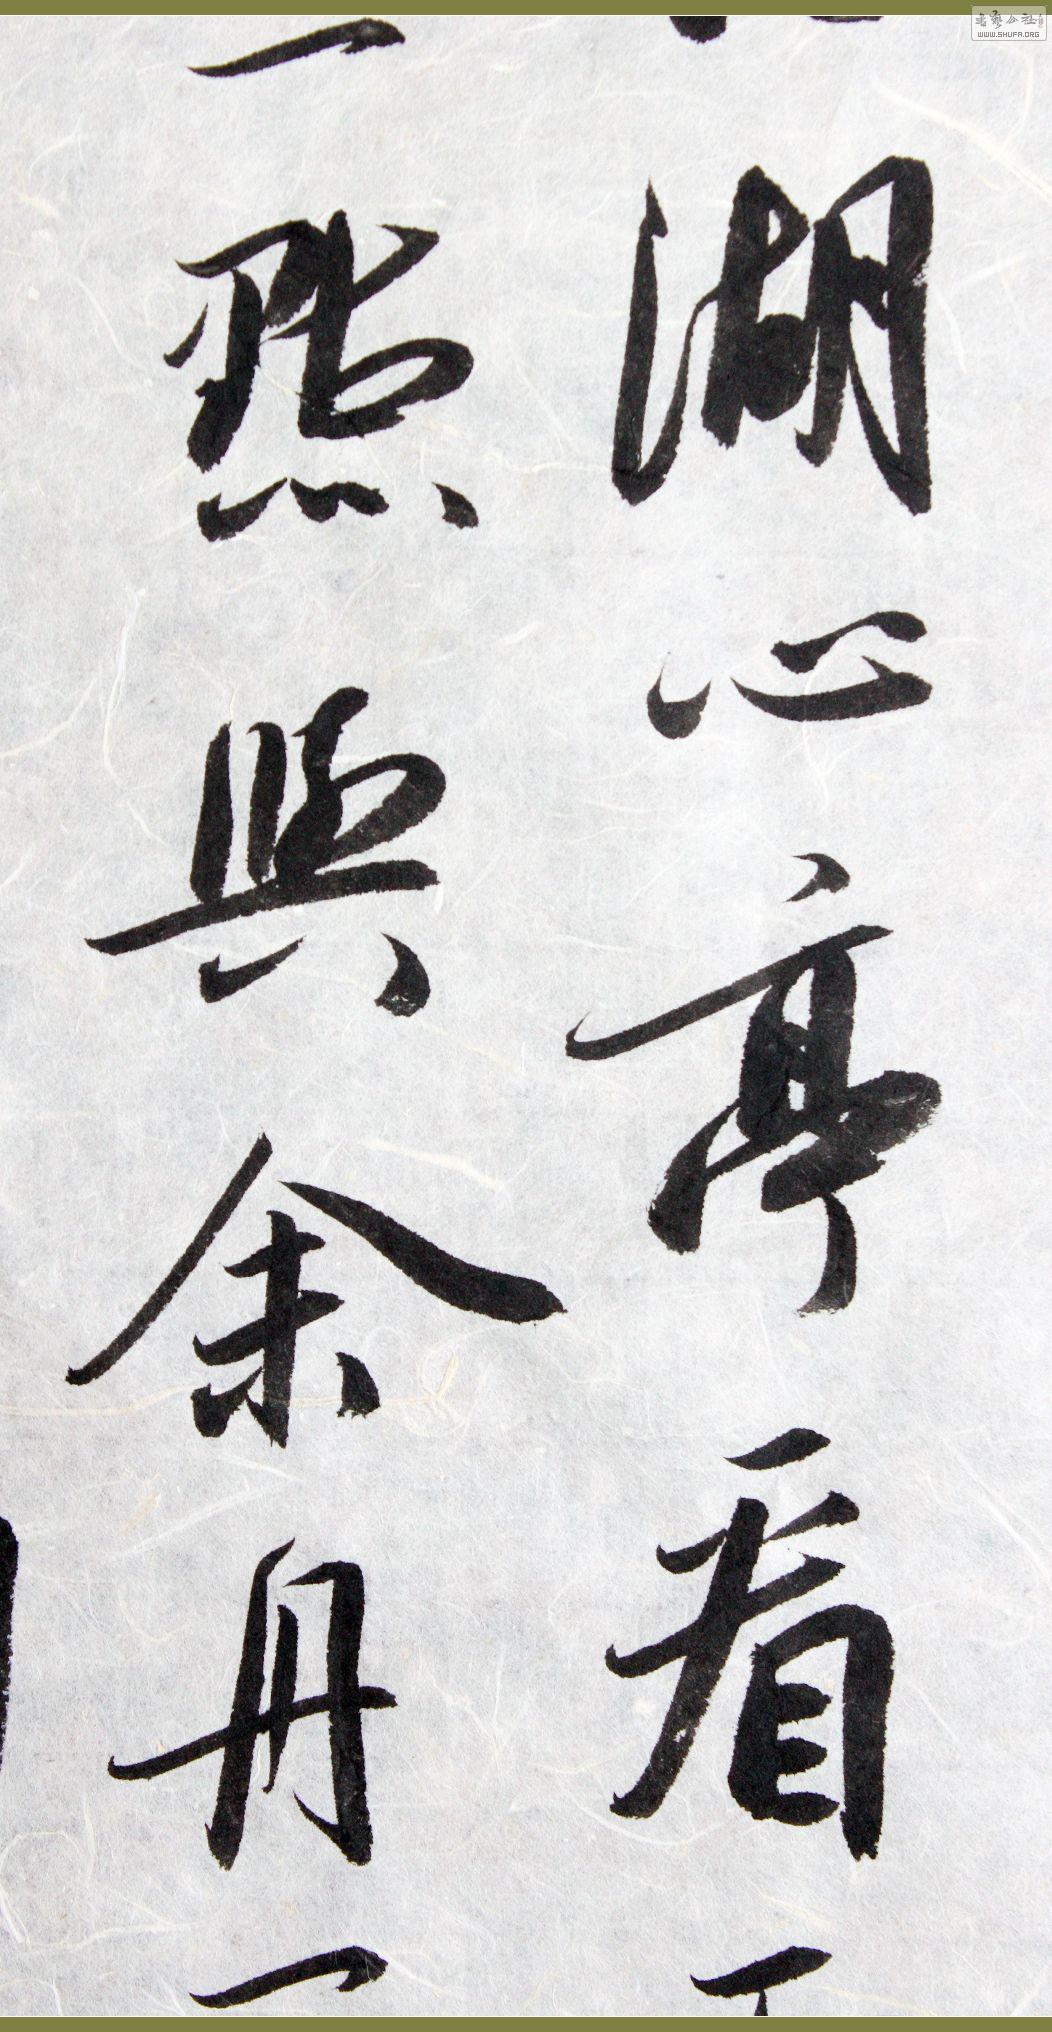 湖心亭看
一點與余舟一
書藝公社
WWW.SHUFA.ORG